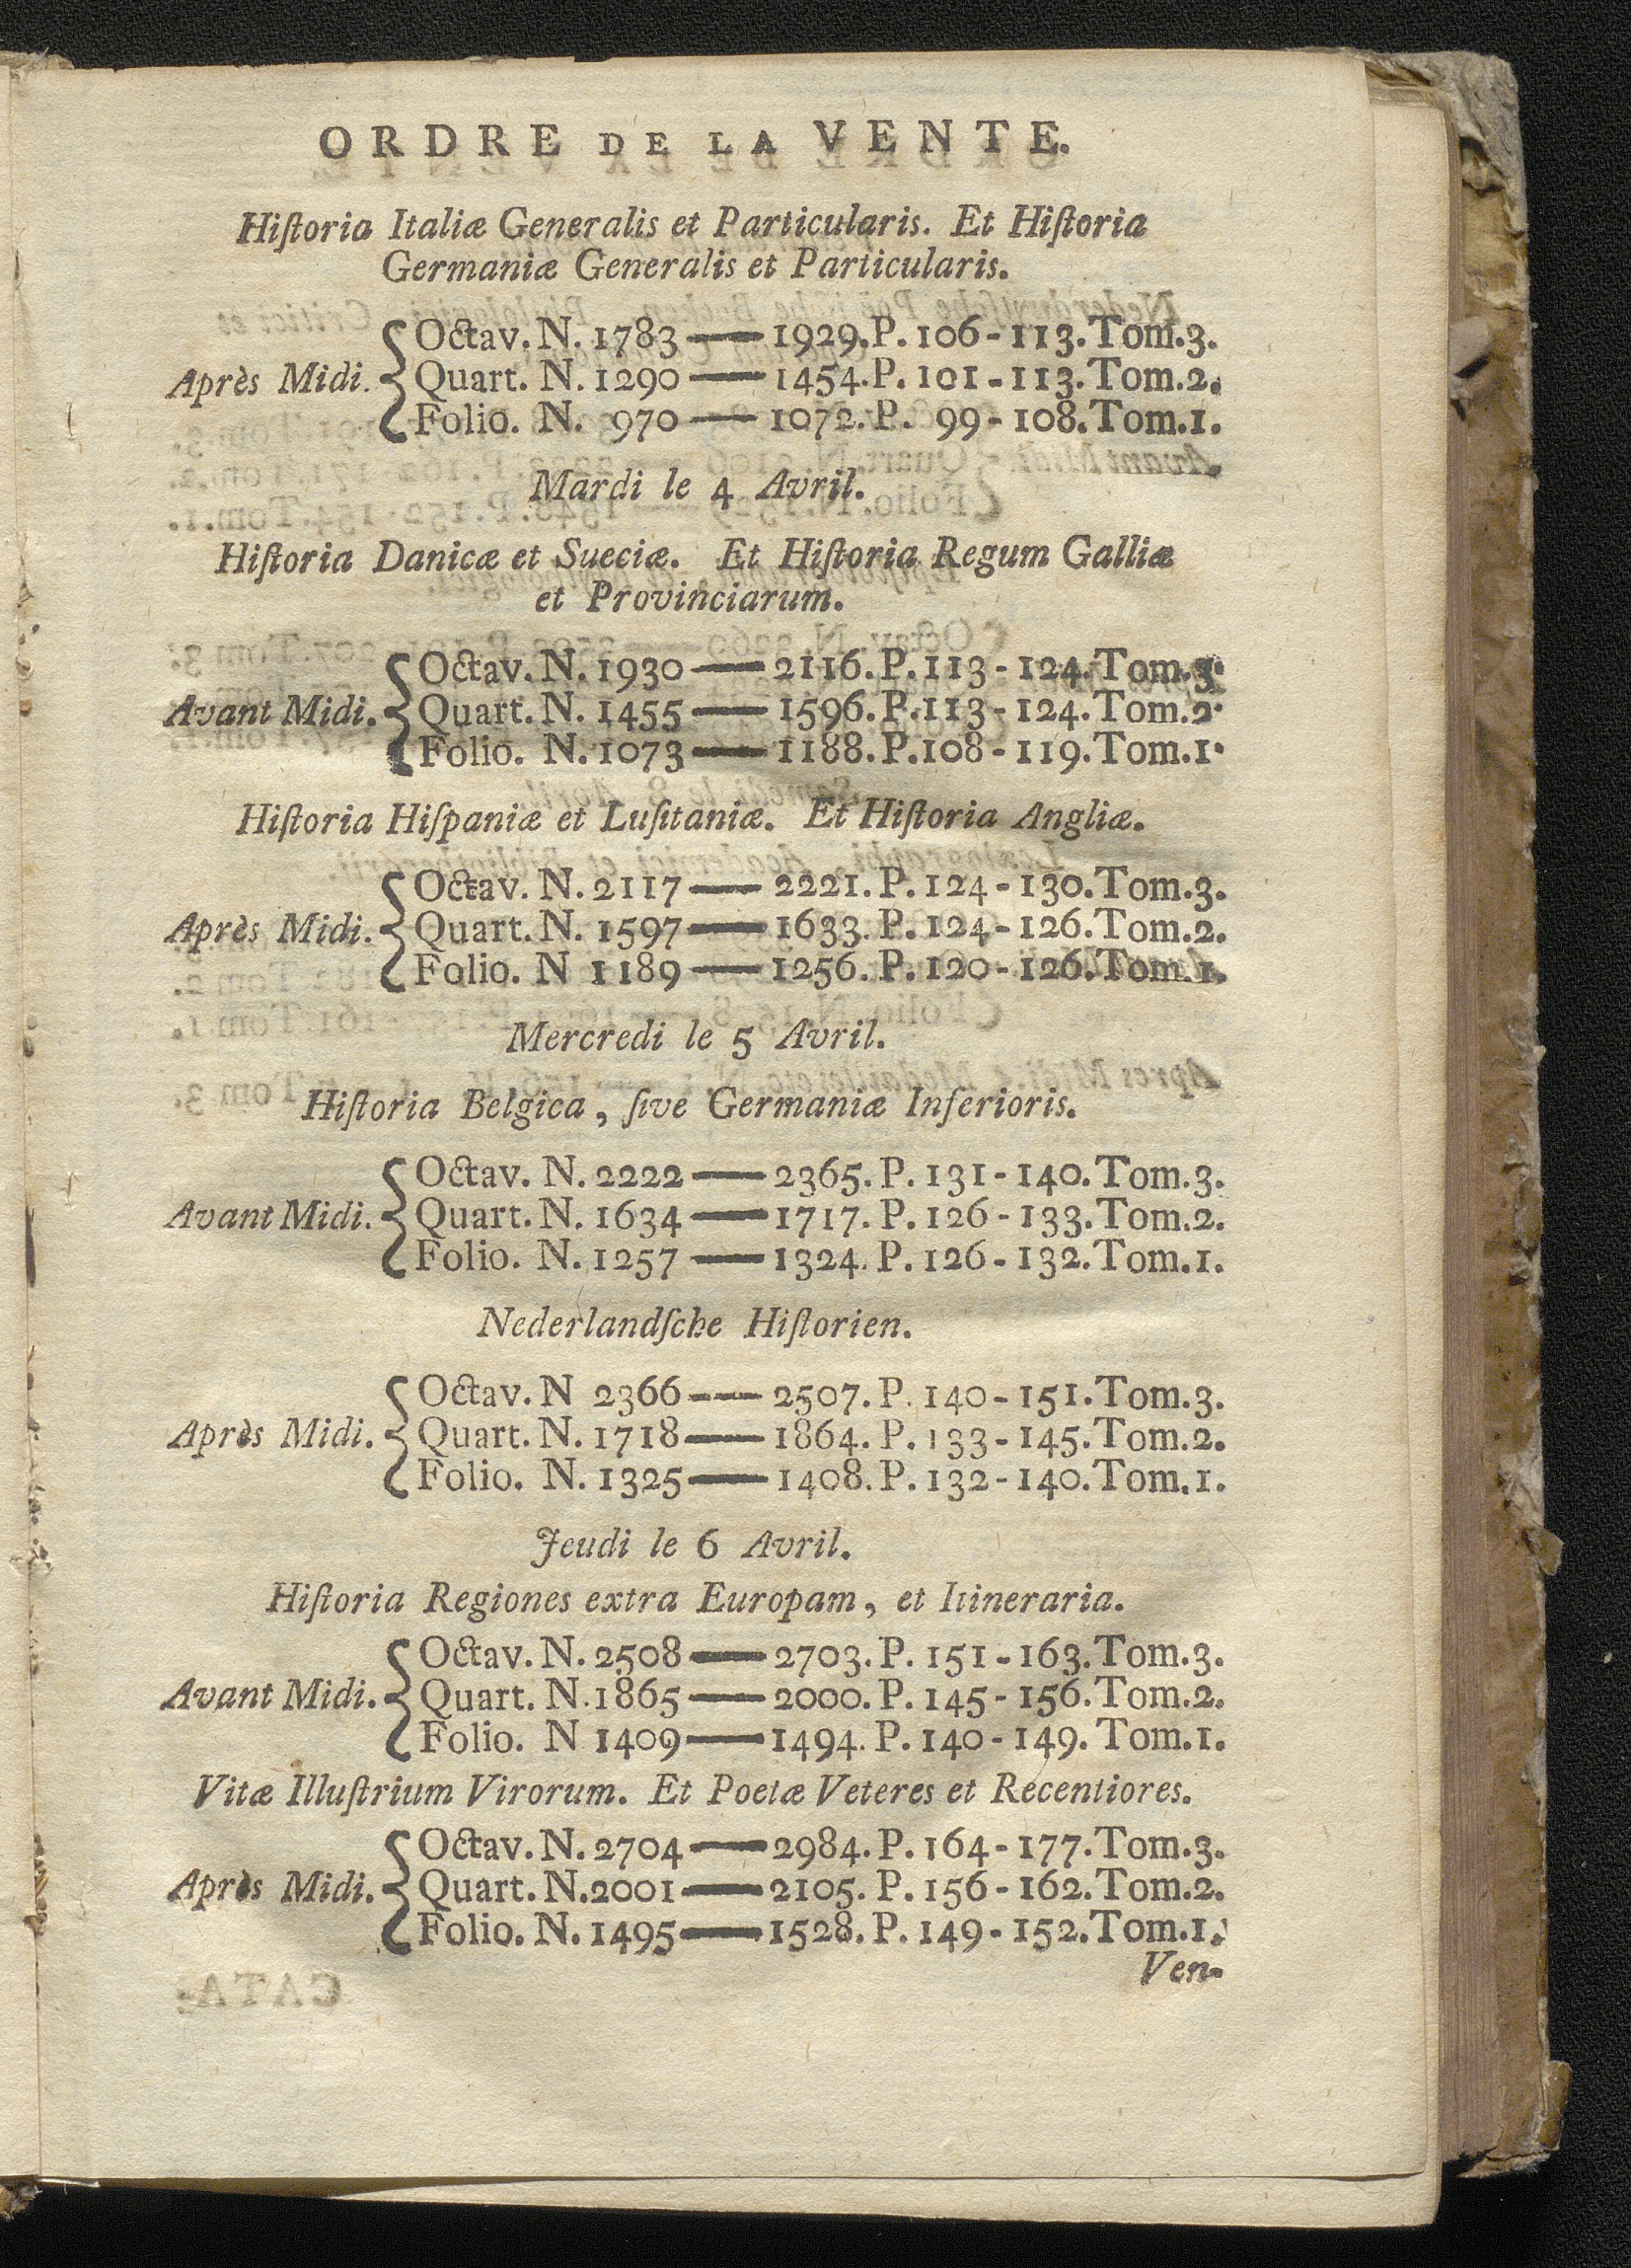 ORDRE DE LA VENTE.
Hiſtoria Italiæ Generalis et Particularis. Et Hiſtoria
Germaniæ Generalis et Particularis.
Octav. N. 1783 — 1929. P. 106 - 113. Tom. 3.
Après Midi. Quart. N. 1290 — 1454. P. 101 - 113. Tom. 2.
Folio. N. 970 — 1072. P. 99 - 108. Tom. 1.
Mardi le 4 Avril.
Hiſtoria Danicæ et Sueciæ. Et Hiſtoria Regum Galliæ
et Provinciarum.
Octav. N. 1930 — 2116. P. 113 - 124. Tom. 3.
Avant Midi. Quart. N. 1455 — 1596. P. 113 - 124. Tom. 2.
Folio. N. 1073 — 1188. P. 108 - 119. Tom. 1.
Hiſtoria Hiſpaniæ et Luſitaniæ. Et Hiſtoria Angliæ.
Octav. N. 2117 — 2221. P. 124 - 130. Tom. 3.
Après Midi. Quart. N. 1597 — 1633. P. 124 - 126. Tom. 2.
Folio. N 1189 — 1256. P. 120 - 126. Tom. 1.
Mercredi le 5 Avril.
Hiſtoria Belgica, ſive Germaniæ Inferioris.
Octav. N. 2222 — 2365. P. 131 - 140. Tom. 3.
Avant Midi. Quart. N. 1634 — 1717. P. 126 - 133. Tom. 2.
Folio. N. 1257 — 1324. P. 126 - 132. Tom. 1.
Nederlandſche Hiſtorien.
Octav. N 2366 — 2507. P. 140 - 151. Tom. 3.
Après Midi. Quart. N. 1718 — 1864. P. 133 - 145. Tom. 2.
Folio. N. 1325 — 1408. P. 132 - 140. Tom. 1.
Jeudi le 6 Avril.
Hiſtoria Regiones extra Europam, et Itineraria.
Octav. N. 2508 — 2703. P. 151 - 163. Tom. 3.
Avant Midi. Quart. N. 1865 — 2000. P. 145 - 156. Tom. 2.
Folio. N 1409 — 1494. P. 140 - 149. Tom. 1.
Vitæ Illuſtrium Virorum. Et Poetæ Veteres et Recentiores.
Octav. N. 2704 — 2984. P. 164 - 177. Tom. 3.
Après Midi. Quart. N. 2001 — 2105. P. 156 - 162. Tom. 2.
Folio. N. 1495 — 1528. P. 149 - 152. Tom. 1.
Ven-